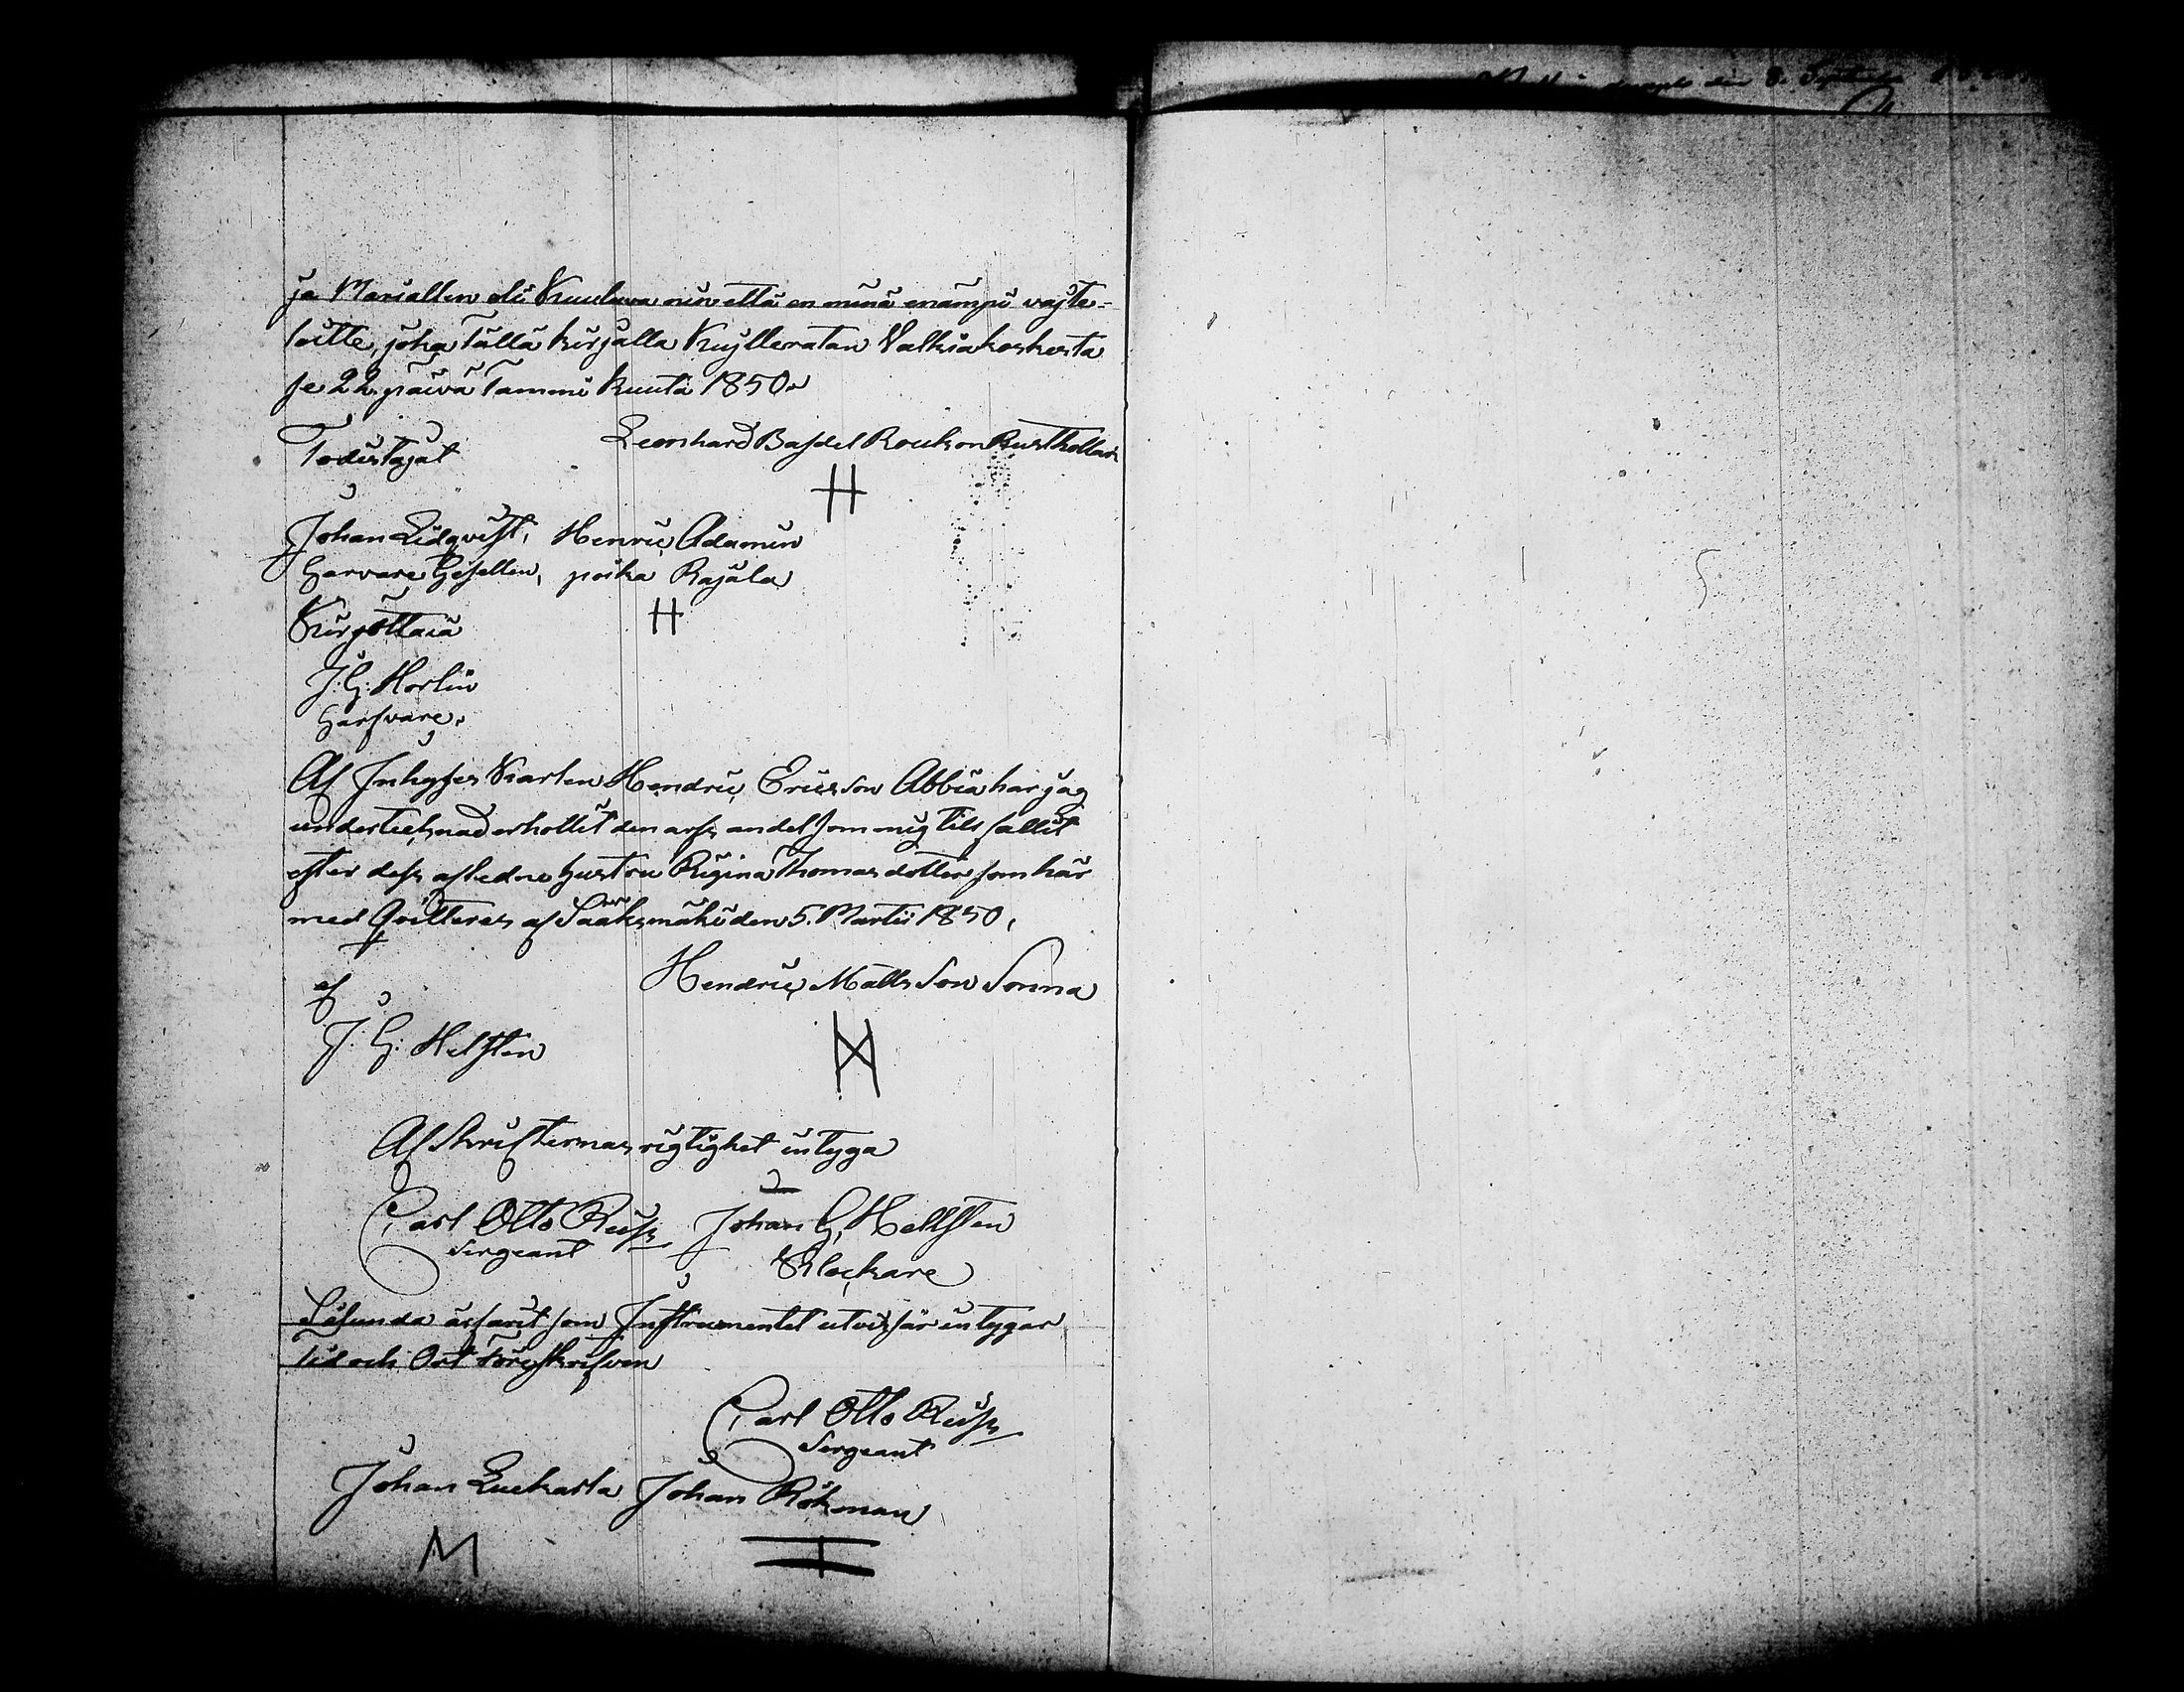 den 8. Septembr
ja Mariallen oli Kuuluwa niin että en minä enämpi wajte-
loitte, joka Tällä kirjalla Kujtteratan Valkiakoskesta
se 22. päiwä Tammi kuuta 1850.
Todistajat Leonhard Basdel Roukon Rusthollari
Johan Lidqvist, Henric Adamin
Garvare Gesellen, poika Rajala
Kirjottaia
J: G: Horlin
Garfvare.
Af Inhyses Karlen Hendric Ericsson Abbia har jag
undertecknad erhollit den arfs andel som mig tils fallit
efter dess afledne hustru Regina Thomas dotter som här
med Qvitteras af Sääksmäki den 5. Martii 1850,
Hendric Matts Son Sonna
af
J: G: Helsten
Afskrifternas rigtighet intyga
Carl Otto Reiss Johan G, Hellsten
Sergeant Klockare
Sålunda är farit som Instrumentet utvisar intygar
tid och Ort Föreskrifven
Carl Otto Reiss
Sergeant
Johan Luckarla Johan Rökman